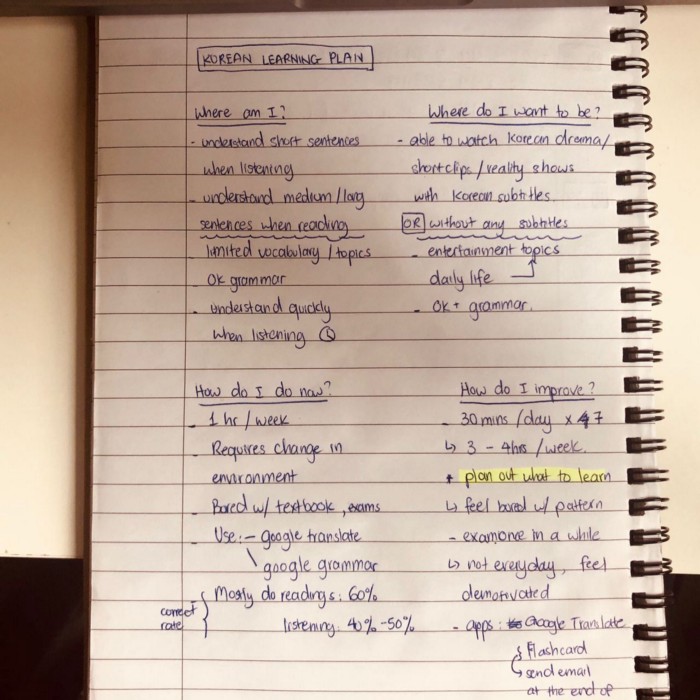 KOREAN LEARNING PLAN
Where am I?
- understand short sentences
when listening
- understand medium / long
sentences when reading
- limited vocabulary / topics
- OK grammar
- understand quickly
when listening
Where do I want to be?
- able to watch Korean drama/
short clips / reality shows
with Korean subtitles
OR without any subtitles
- entertainment topics
daily life
- OK+ grammar.
How do I do now?
- 1 hr / week
- Requires change in
environment
- Bored w/ textbook, exams
- Use: - google translate
google grammar
correct
rate
- Mostly do readings: 60%
listening: 40% - 50%
How do I improve?
- 30 mins / day x 7
↳ 3 - 4hrs / week.
+ plan out what to learn
↳ feel bored w/ pattern
- exam once in a while
↳ not everyday, feel
demotivated
- apps: Google Translate
Flashcard
send email
at the end of